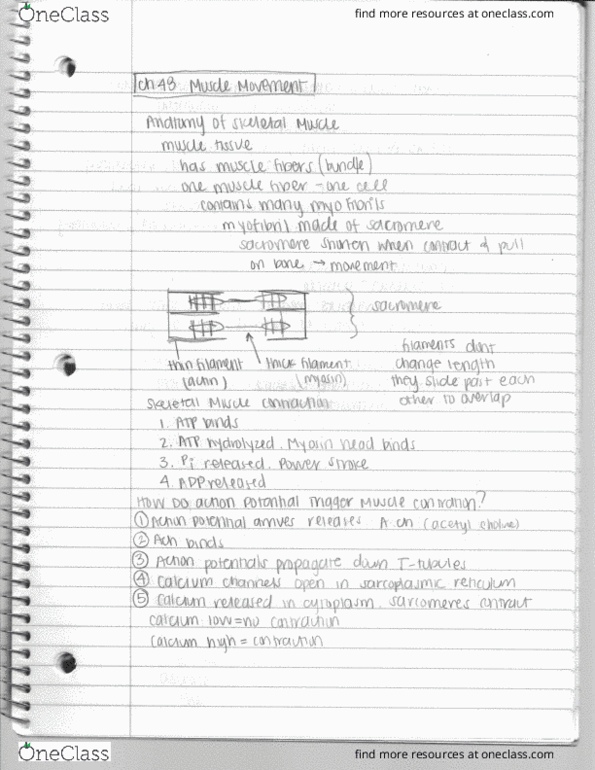 OneClass
find more resources at oneclass.com
Ch 48 Muscle Movement
Anatomy of Skeletal Muscle
muscle tissue
has muscle fibers (bundle)
one muscle fiber - one cell
contains many myofibrils
myofibril made of sacromere
sacromere shorten when contract & pull
on bone → movement
sacromere
thin filament
(actin)
thick filament
(myosin)
filaments dont
change length
they slide past each
other to overlap
Skeletal Muscle contraction
1. ATP binds
2. ATP hydrolyzed. Myosin head binds
3. Pi released. Power stroke
4. ADP released
How DO action Potential Trigger Muscle contraction?
① Action potential arrives releases Ach (acetyl choline)
② Ach binds
③ Action potentials propagate down T-tubules
④ Calcium channels open in sarcoplasmic reticulum
⑤ Calcium released in cytoplasm. sarcomeres contract
calcium low = no contraction
calcium high = contraction
OneClass
find more resources at oneclass.com